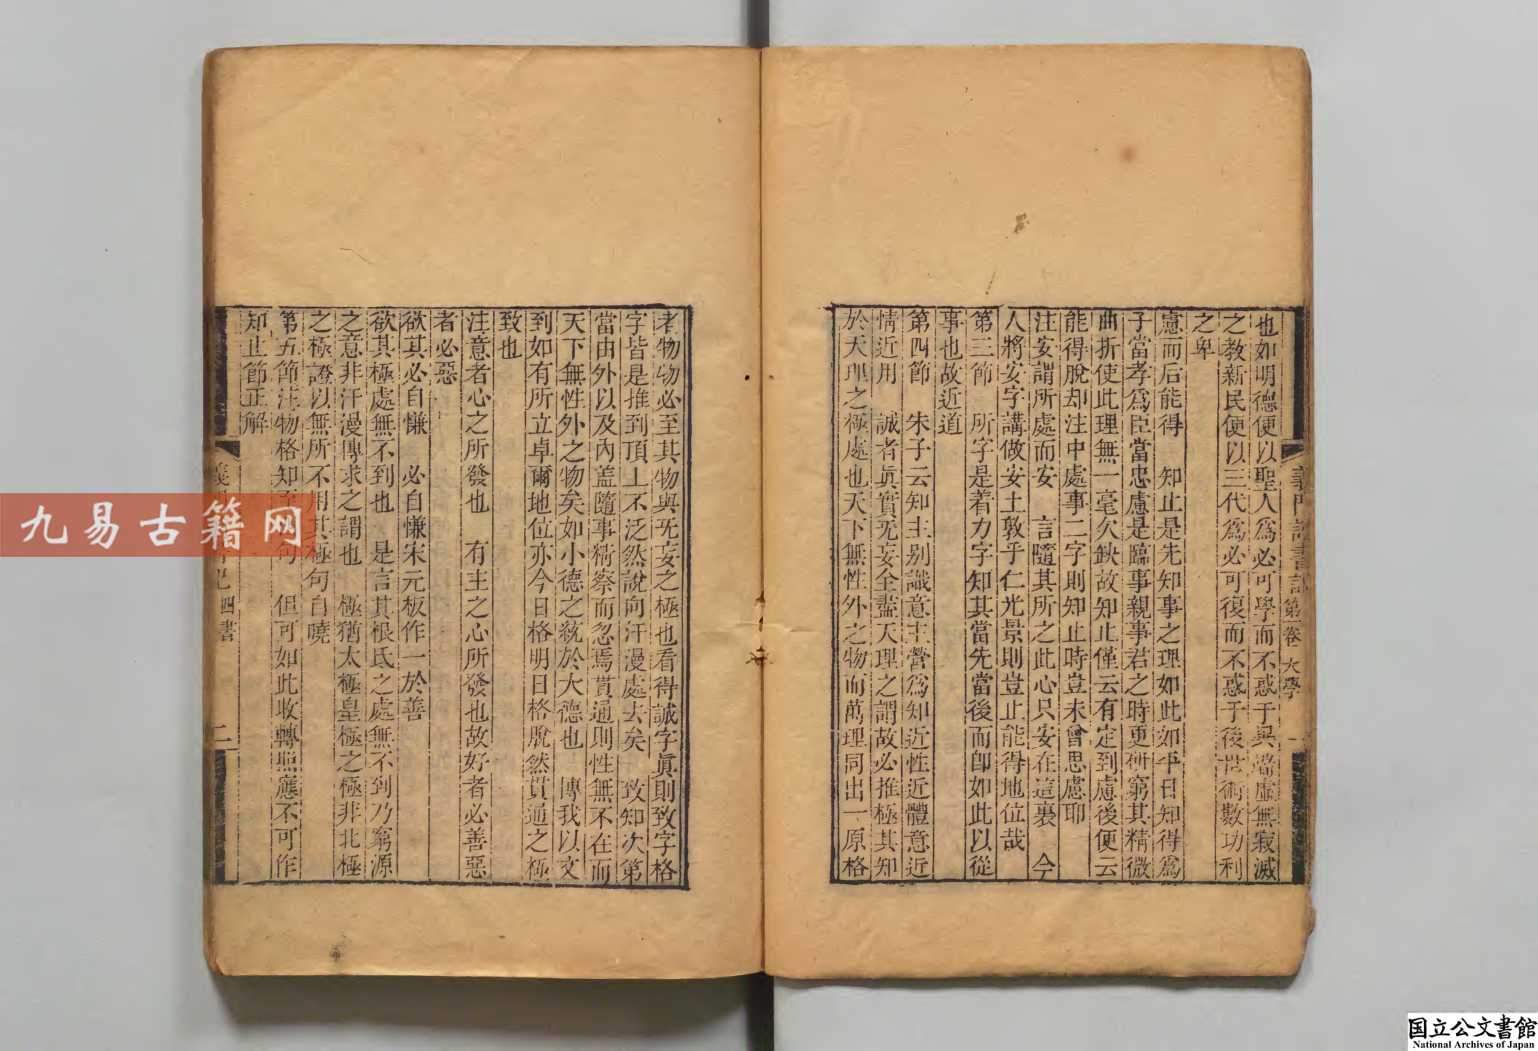 也如明德便以聖人爲必可學而不惑于異端虛無寂滅
之教新民便以三代爲必可復而不惑于後世術數功利
之卑
慮而后能得　知止是先知事之理如此如平日知得爲
子當孝爲臣當忠慮是臨事親事君之時更研窮其精微
曲折使此理無一毫欠缺故知止僅云有定到慮後便云
能得脫却注中處事二字則知止時豈未曾思慮耶
注安謂所處而安　言隨其所之此心只安在這裏　今
人將安字講做安土敦乎仁光景則豈止能得地位哉
第三節　所字是着力字知其當先當後而卽如此以從
事也故近道
第四節　朱子云知主别識意主營爲知近性近體意近
情近用　誠者眞實无妄全盡天理之謂故必推極其知
於天理之極處也天下無性外之物而萬理同出一原格
義門讀書記 第一卷 大學
者物物必至其物與无妄之極也看得誠字眞則致字格
字皆是推到頂上不泛然說向汗漫處去矣　致知次第
當由外以及內盖隨事精察而忽焉貫通則性無不在而
天下無性外之物矣如小德之統於大德也　博我以文
到如有所立卓爾地位亦今日格明日格脫然貫通之極
致也
注意者心之所發也　有主之心所發也故好者必善惡
者必惡
欲其必自慊　必自慊宋元板作一於善
欲其極處無不到也　是言其根氐之處無不到乃窮源
之意非汗漫慱求之謂也　極猶太極皇極之極非北極
之極證以無所不用其極句自曉
第五節注物格知至句　但可如此收轉照應不可作
知止節正解
四書
二
九易古籍网
国立公文書館
National Archives of Japan